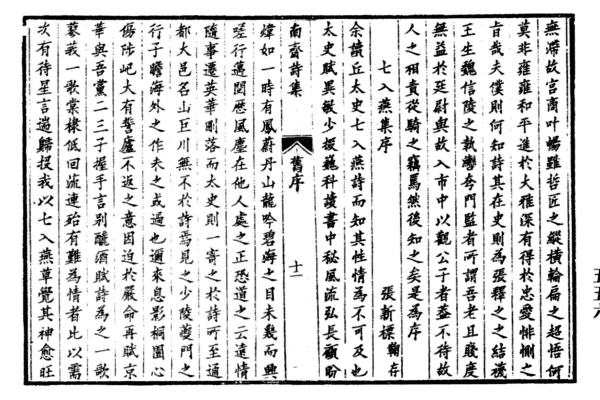 無滯故宮商叶暢雖哲匠之縱橫輪扁之超悟何
莫非雍雍和平進於大雅深有得於忠愛悱惻之
旨哉夫僕則何知詩其在史則為張釋之之結襪
王生魏信陵之執轡夷門監者所謂吾老且賤度
無益於廷尉與故入市中以觀公子者蓋不待故
人之相責從騎之竊罵然後知之矣是為序
張新標鞠存
七入燕集序
余讀丘太史七入燕詩而知其性情為不可及也
太史賦異敏少掇巍科讀書中秘風流弘長顧盼
南齋詩集
舊序
十二
煒如一時有鳳蔚丹山龍吟碧海之目未幾而興
嗟行邁閱歷風塵在他人處之正恐道之云遠情
隨事遷英華剛落而太史則一寄之於詩所至通
都大邑名山巨川無不於詩焉見之少陵夔門之
行子瞻海外之作未之或過也邇來息影桐園心
傷陟屺大有誓廬不返之意因迫於嚴命再賦京
華與吾黨二三子握手言別釃酒賦詩為之一歌
蓼莪一歌棠棣低回流連殆有難為情者比以需
次有待星言遄歸投我以七入燕草覺其神愈旺
五五六